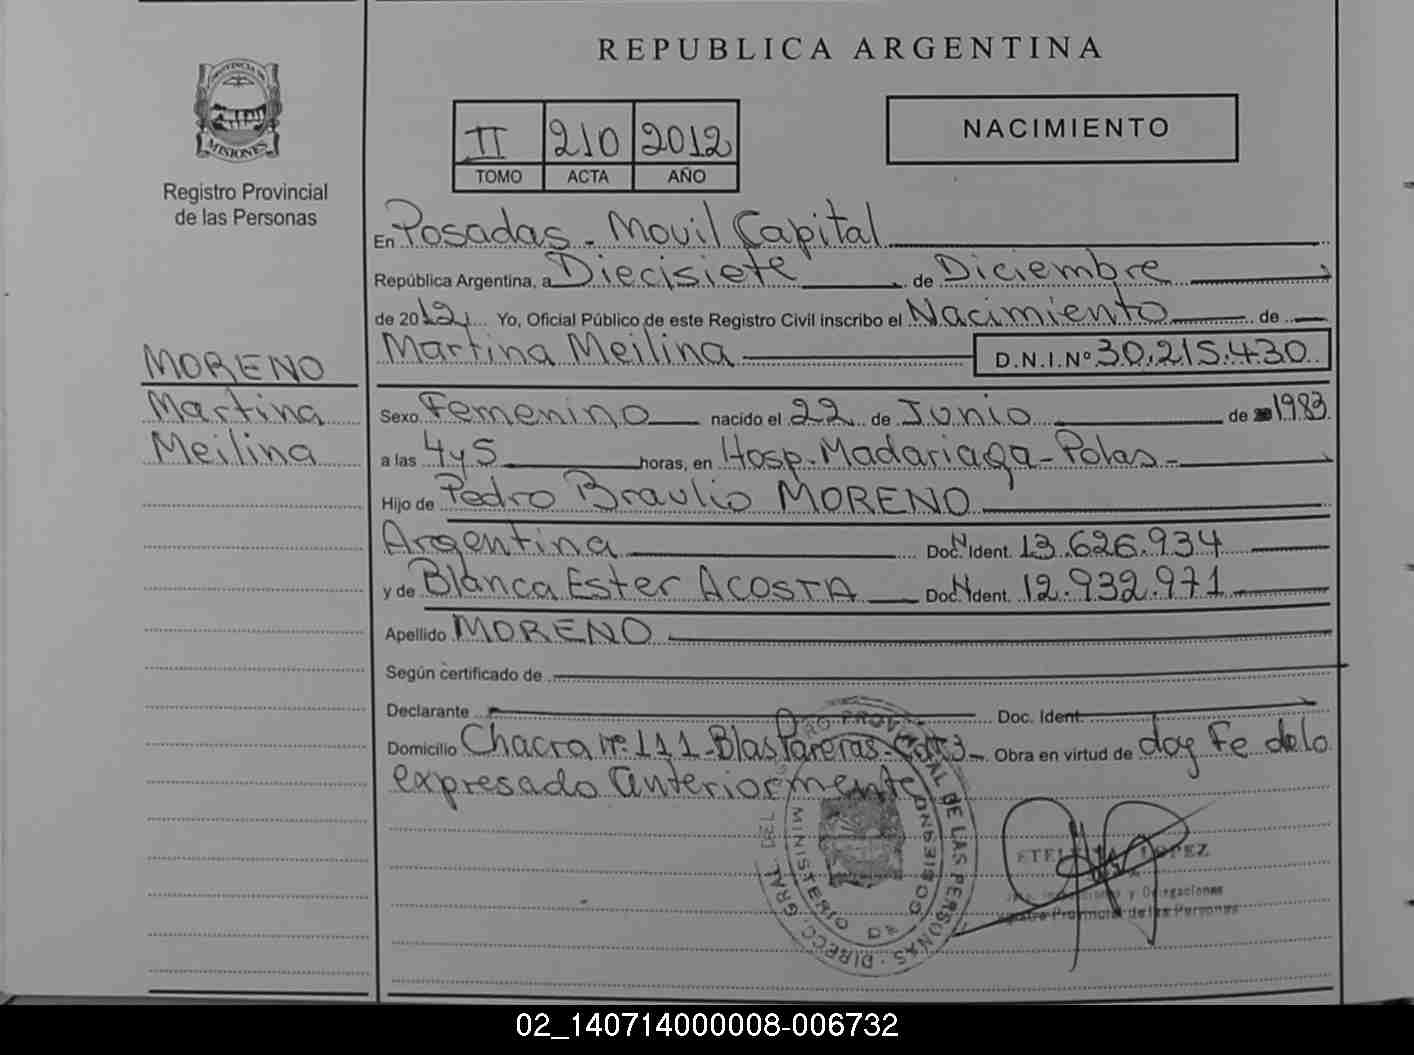 REPUBLICA ARGENTINA
PROVINCIA DE
MISIONES
Registro Provincial
de las Personas
II 210 2012
TOMO ACTA AÑO
NACIMIENTO
En Posadas. Movil Capital
República Argentina, a Diecisiete de Diciembre
de 2012 Yo, Oficial Público de este Registro Civil inscribo el Nacimiento de
Martina Meilina D.N.I.Nº 30.215.430
MORENO
Martina
Meilina
Sexo Femenino nacido el 22 de Junio de 1983
a las 4y5 horas, en Hosp. Madariaga - Pdas -
Hijo de Pedro Braulio MORENO
Argentina Doc. N Ident. 13.626.934
y de Blanca Ester ACOSTA Doc. N Ident. 12.932.971
Apellido MORENO
Según certificado de
Declarante Doc. Ident.
Domicilio Chacra nº 111-Blas Pareras - 3 Obra en virtud de doy Fe de lo
expresado anteriormente
DIRECC. GRAL. DEL REGISTRO PROVINCIAL DE LAS PERSONAS
MINISTERIO DE GOBIERNO
LOPEZ
y Delegaciones
Registro Provincial de las Personas
02_140714000008-006732